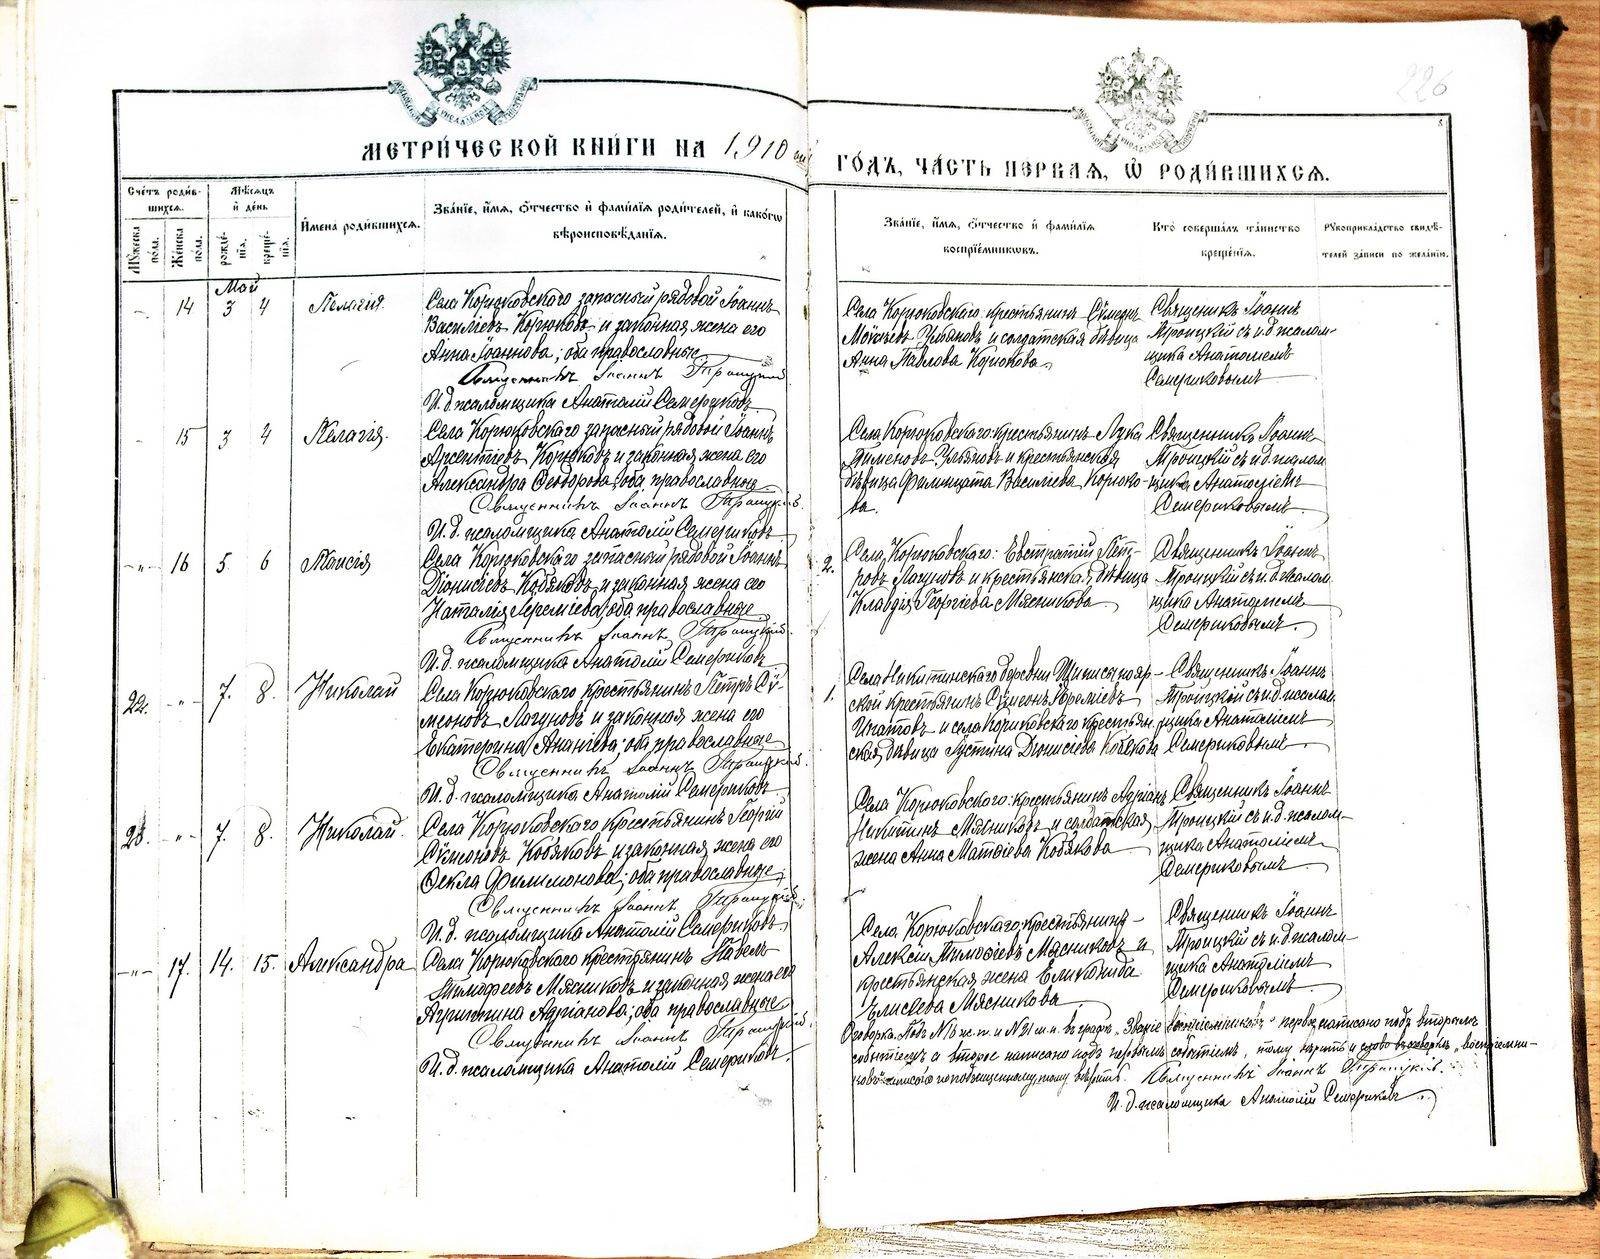 226
МЕТРИ́ЧЕСКОЙ КНИ́ГИ НА 1910 ый
ГО́ДЪ, ЧА́СТЬ ПЕ́РВАЯ, Ѡ РОДИ́ВШИХСЯ.
Сче́тъ роди́в-
шихся.
Му́жеска по́ла.
Же́нска по́ла.
Мѣ́сяцъ
и҆ де́нь
рожде́-
нія.
креще́-
нія.
И҆́мена роди́вшихся.
Зва́ніе, и҆́мя, ѻ҆́тчество и҆ фами́лія роди́телей, и҆ како́гѡ
вѣроисповѣ́данія.
Зва́ніе, и҆́мя, ѻ҆́тчество и҆ фами́лія
воспріе́мникѡвъ.
Кто̀ соверша́лъ та́инство
креще́нія.
Рукоприкла́дство свидѣ́-
телей за́писи по жела́нію.
Май
14 3 4 Пелагія.
Села Корюковскаго запасный рядовой Іоаннъ
Василіевъ Корюковъ и законная жена его
Анна Іоаннова; оба православные
Священникъ Іоаннъ Троицкій
И. д. псаломщика Анатолій Семериковъ.
Села Корюковскаго крестьянинъ
Ульяновъ и солдатская дѣвица
Анна Павлова Корюкова.
Священникъ Іоаннъ
Троицкій съ и. д. псалом-
щика Анатоліемъ
Семериковымъ
15 3 4 Пелагія.
Села Корюковскаго запасный рядовой Іоаннъ
Авксентіевъ Корюковъ и законная жена его
Александра Ѳеодорова; оба православные.
Священникъ Іоаннъ Троицкій.
И. д. псаломщика Анатолій Семериковъ
Села Корюковскаго: крестьянинъ Лука
Пименовъ Ульяновъ и крестьянская
дѣвица Фелицата Василіева Корюко-
ва.
Священникъ Іоаннъ
Троицкій съ и. д. псалом
щика Анатоліемъ
Семериковымъ.
-"- 16 5 6 Таисія
Села Корюковскаго запасный рядовой Іоаннъ
Діонисіевъ Кобяковъ и законная жена его
Наталія Іереміева; оба православные
Священникъ Іоаннъ Троицкій.
И. д. псаломщика Анатолій Семериковъ
2. Села Корюковскаго: Евстратій Пет-
ровъ Лагуновъ и крестьянская дѣвица
Клавдія Георгіева Мясникова
Священникъ Іоаннъ
Троицкій съ и. д. псалом
щика Анатоліемъ
Семериковымъ.
22. -"- 7. 8. Николай
Села Корюковскаго крестьянинъ Петръ Сѵ-
меоновъ Лагуновъ и законная жена его
Екатерина Ананіева; оба православные
Священникъ Іоаннъ Троицкій.
И. д. псаломщика Анатолій Семериковъ.
1. Села Никитинскаго деревни
ской крестьянинъ Сѵмеонъ
Игнатовъ и села Корюковскаго крестьян-
ская дѣвица Іустина Діонисіева Кобякова
Священникъ Іоаннъ
Троицкій съ и. д. псалом
щика Анатоліемъ
Семериковымъ.
23. -"- 7. 8. Николай.
Села Корюковскаго крестьянинъ Георгій
Сѵмеоновъ Кобяковъ и законная жена его
Ѳекла Филимонова; оба православные
Священникъ Іоаннъ Троицкій.
И. д. псаломщика Анатолій Семериковъ.
Села Корюковскаго: крестьянинъ Адріанъ
Никитинъ Мясниковъ и солдатская
жена Анна Матѳіева Кобякова
Священникъ Іоаннъ
Троицкій съ и. д. псалом-
щика Анатоліемъ
Семериковымъ.
-"- 17. 14. 15. Александра
Села Корюковскаго крестьянинъ Павелъ
Тимоѳеевъ Мясниковъ и законная жена его
Агриппина Адріанова; оба православные
Священникъ Іоаннъ Троицкій
И. д. псаломщика Анатолій Семериковъ.
Села Корюковскаго крестьянинъ
Алексій Тимоѳіевъ Мясниковъ и
крестьянская жена Еликонида
Елисеева Мясникова
Священникъ Іоаннъ
Троицкій съ и. д. псалом-
щика Анатоліемъ
Семериковымъ.
Оговорка. Подъ № 16 ж. п. и № 21 м. п. въ графѣ "Званіе воспріемниковъ" первое написано подъ вторымъ
событіемъ а второе написано подъ первымъ событіемъ, тому вѣрить и слово "воспріемни-
ковъ" тому вѣрить. Священникъ Іоаннъ Троицкій.
И. д. псаломщика Анатолій Семериковъ.